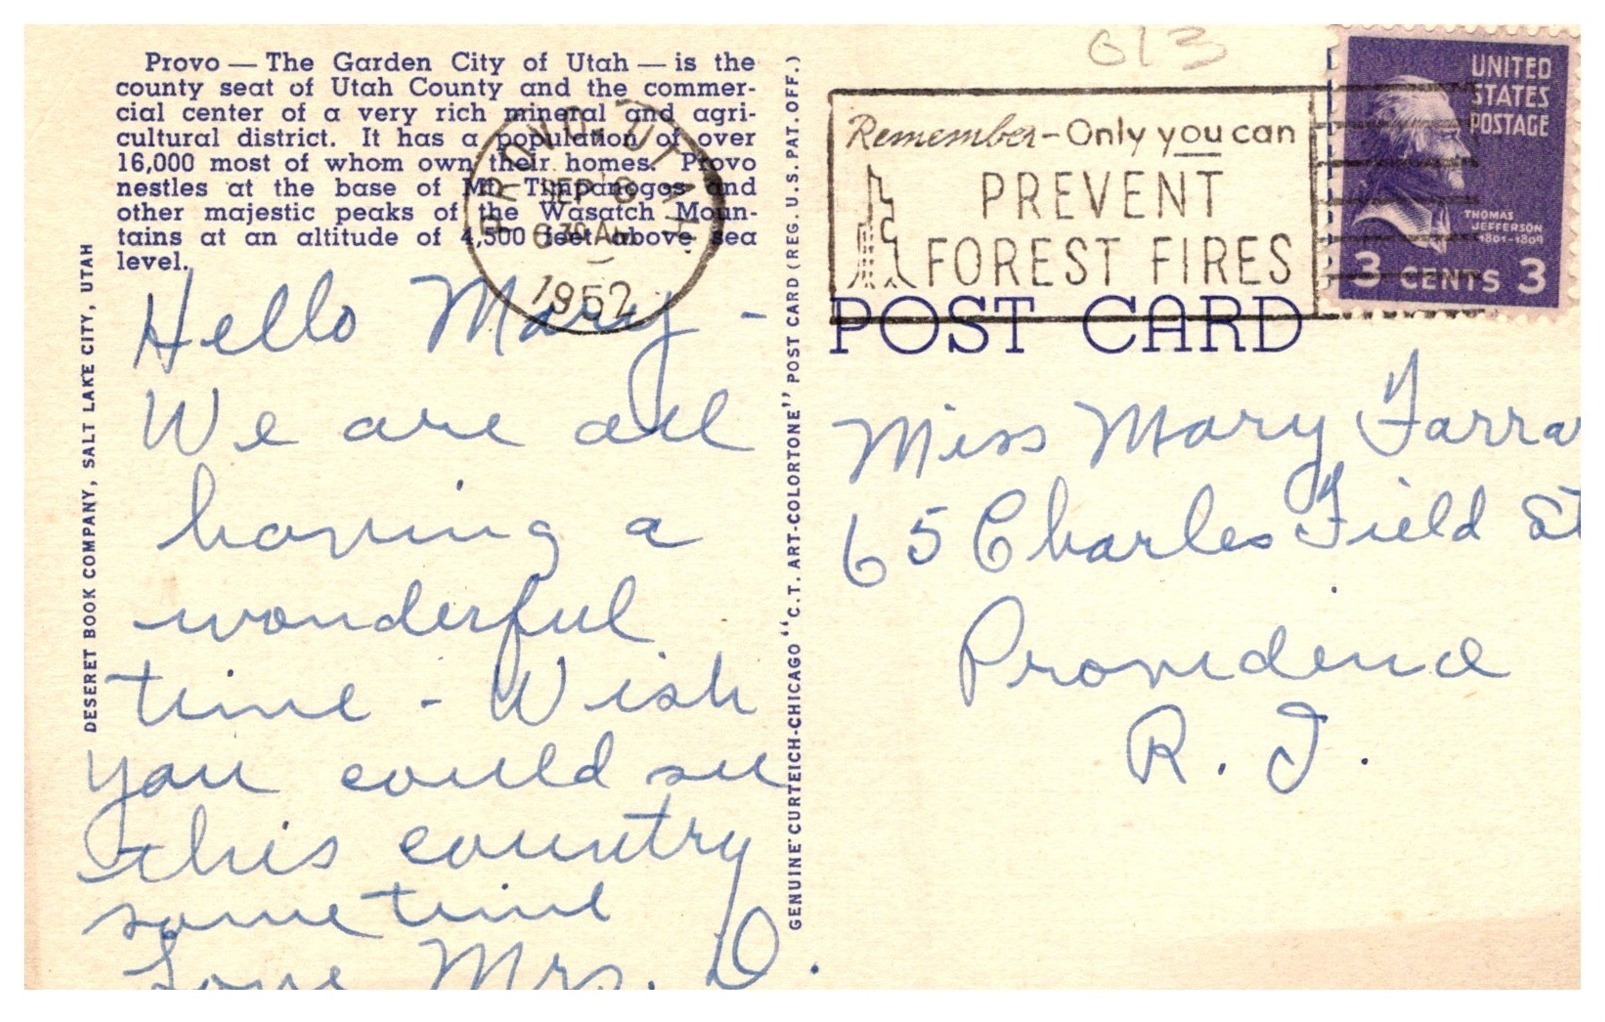 Provo — The Garden City of Utah — is the
county seat of Utah County and the commer-
cial center of a very rich mineral and agri-
cultural district. It has a population of over
16,000 most of whom own their homes. Provo
nestles at the base of Mt. Timpanogos and
other majestic peaks of the Wasatch Moun-
tains at an altitude of 4,500 feet above sea
level.
PROVO, UTAH.
SEP 8
6 30 AM
1952
Hello Mary -
We are all
having a
wonderful
time - Wish
you could see
this country
sometime
Love Mrs. D.
DESERET BOOK COMPANY, SALT LAKE CITY, UTAH
GENUINE CURTEICH-CHICAGO "C.T. ART-COLORTONE" POST CARD (REG. U.S. PAT. OFF.)
613
Remember - Only you can
PREVENT
FOREST FIRES
UNITED
STATES
POSTAGE
THOMAS
JEFFERSON
1801-1809
3 CENTS 3
POST CARD
Miss Mary Farra
65 Charles Field St
Providence
R. I.